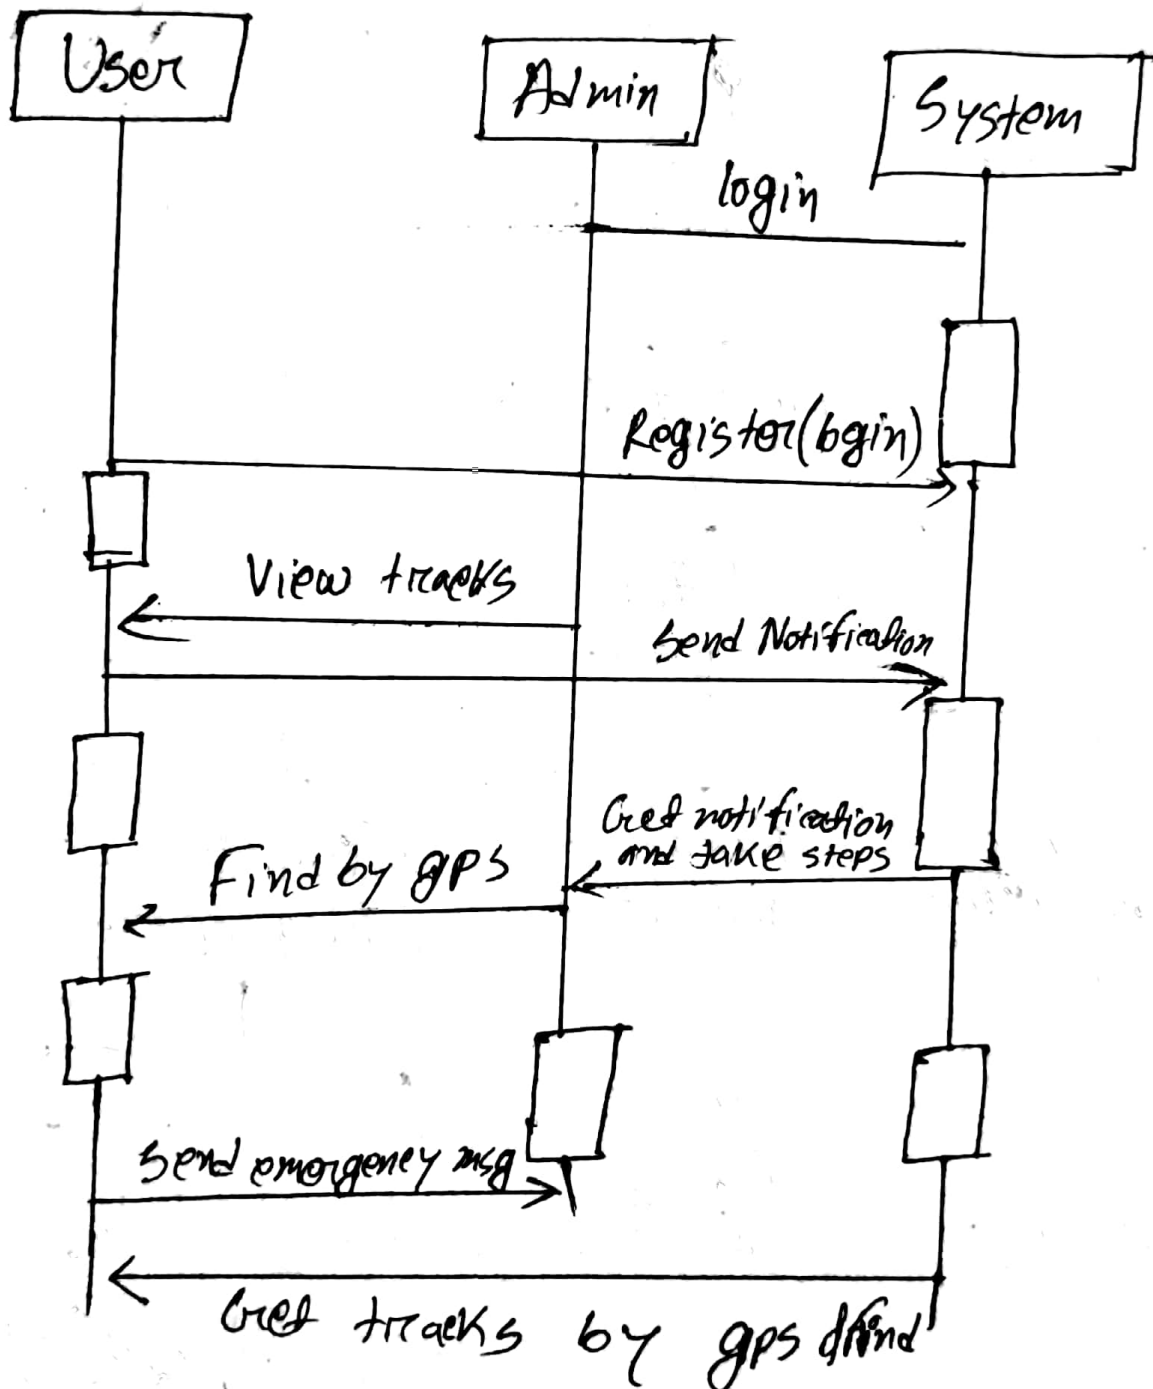 User
Admin
System
login
Register(login)
View tracks
Send Notification
Get notification
and take steps
Find by gps
Send emergency msg
Get tracks by gps